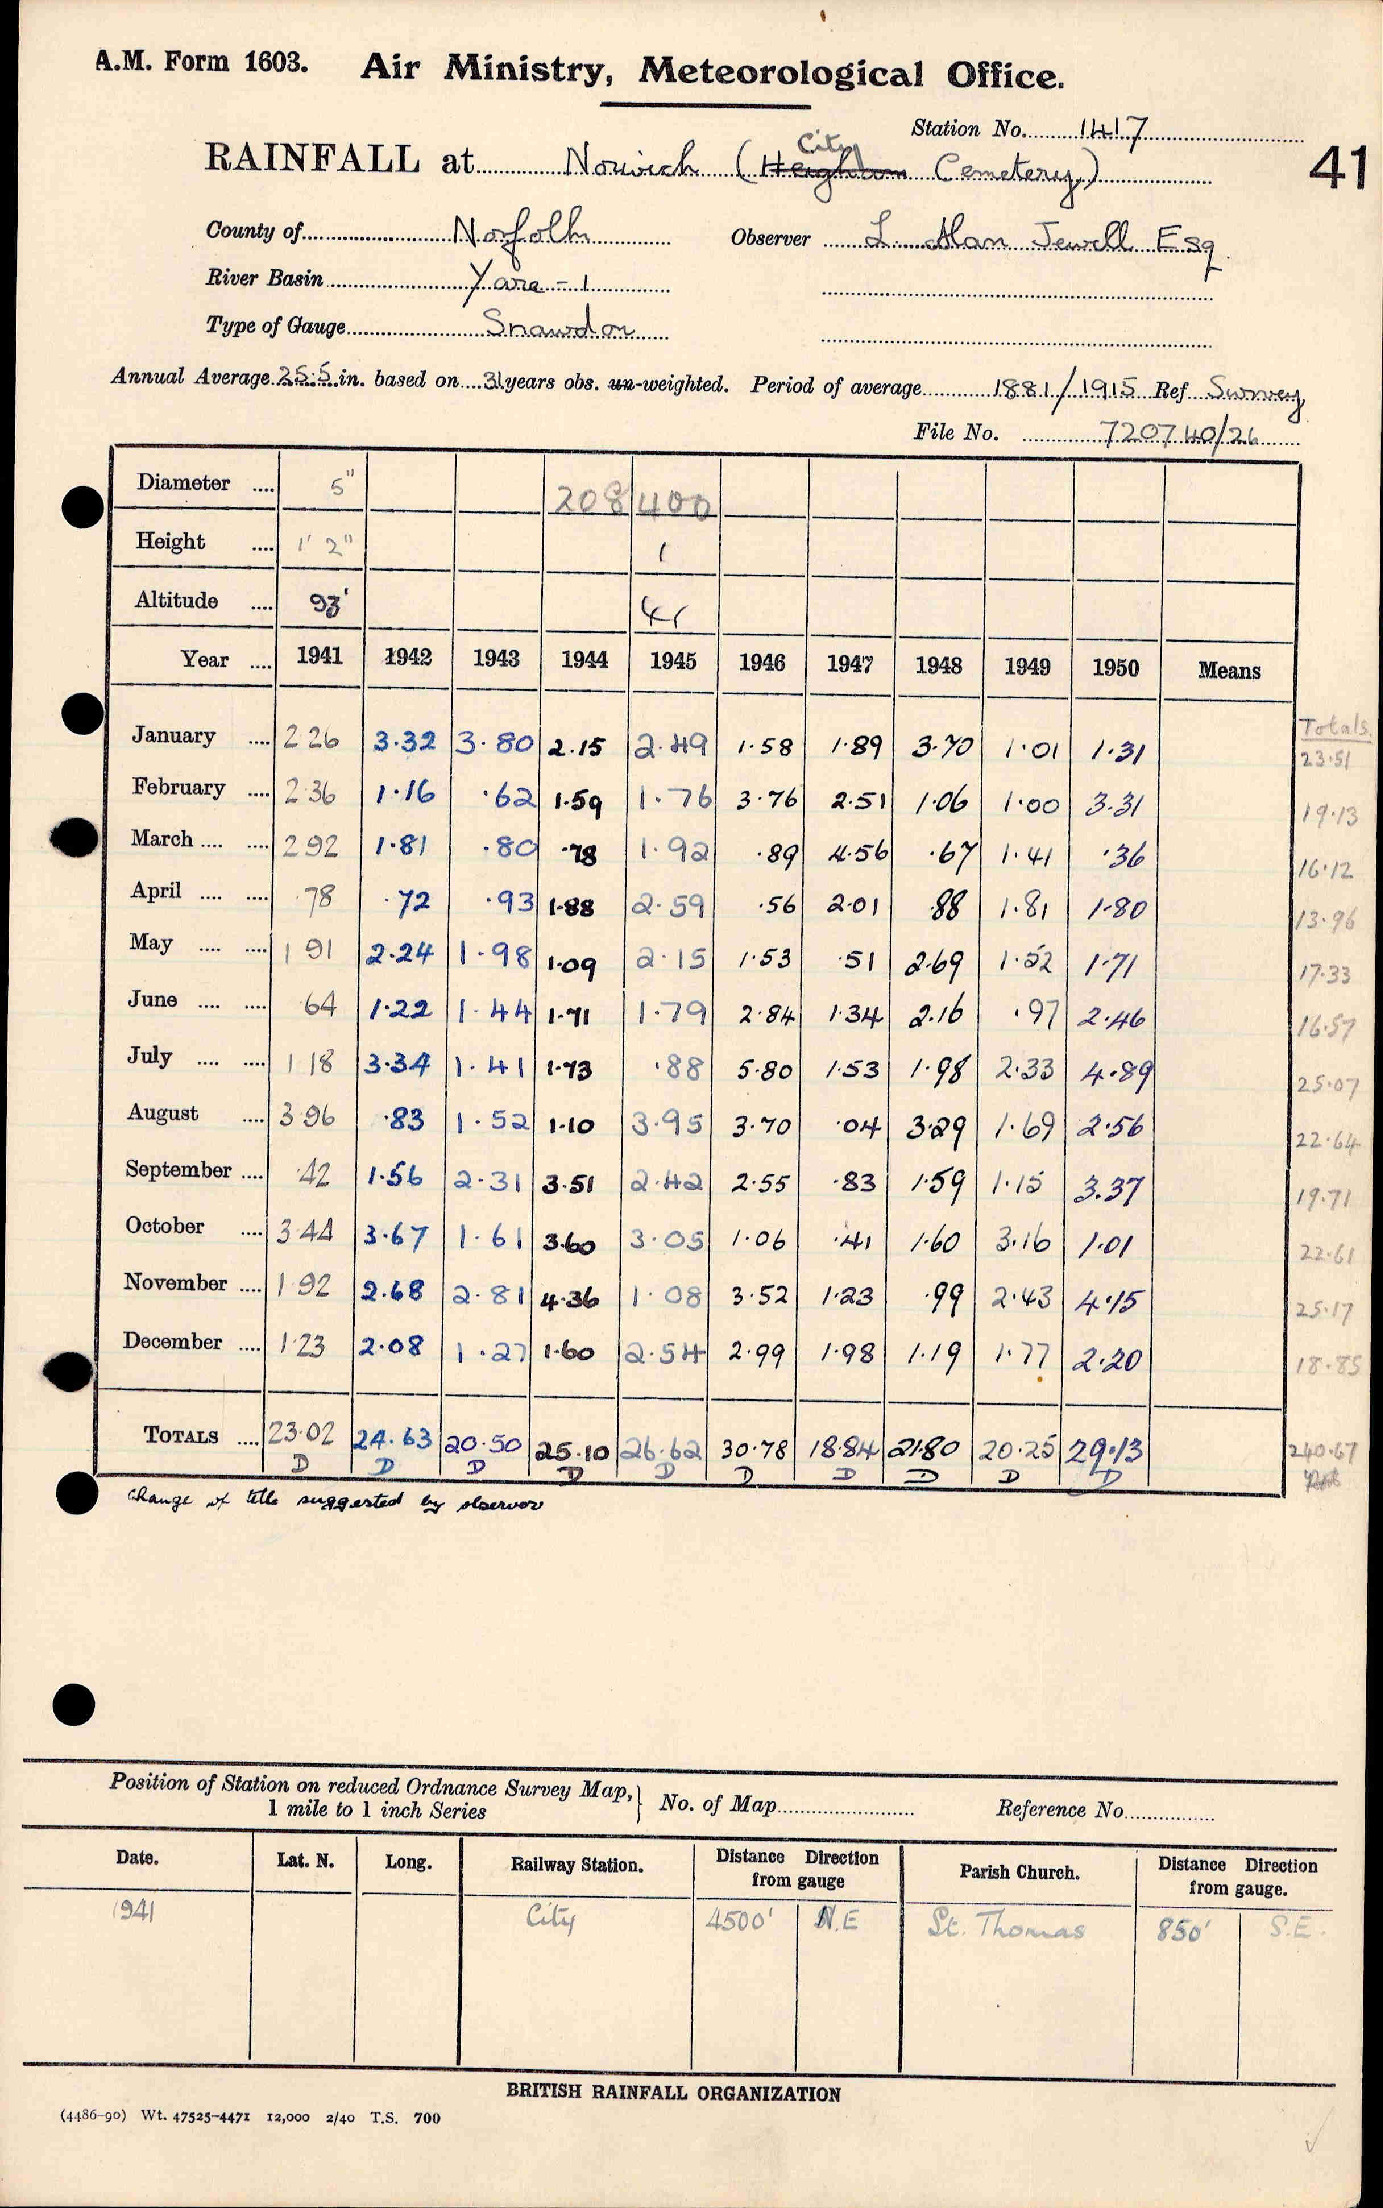 A.M. Form 1603. Air Ministry, Meteorological Office.
Station No. 1417
41
City
RAINFALL at Norwich (Heigham Cemetery)
County of Norfolk Observer L. Alan Jewell Esq
River Basin Yare - 1
Type of Gauge Snowdon
Annual Average 25.5 in. based on 31 years obs. un-weighted. Period of average 1881/1915 Ref Survey
File No. 720740/26
Diameter .... 5" 208400
Height .... 1' 2" 1
Altitude .... 93' 41
Year .... 1941 1942 1943 1944 1945 1946 1947 1948 1949 1950 Means
Totals
January .... 2 26 3.32 3.80 2.15 2.49 1.58 1.89 3.70 1.01 1.31 23.51
February .... 2.36 1.16 .62 1.59 1.76 3.76 2.51 1.06 1.00 3.31 19.13
March .... .... 2 92 1.81 .80 .78 1.92 .89 4.56 .67 1.41 .36 16.12
April .... .... .78 .72 .93 1.88 2.59 .56 2.01 .88 1.81 1.80 13.96
May .... .... 1 91 2.24 1.98 1.09 2.15 1.53 .51 2.69 1.52 1.71 17.33
June .... .... .64 1.22 1.44 1.71 1.79 2.84 1.34 2.16 .97 2.46 16.57
July .... .... 1 18 3.34 1.41 1.73 .88 5.80 1.53 1.98 2.33 4.89 25.07
August .... 3 96 .83 1.52 1.10 3.95 3.70 .04 3.29 1.69 2.56 22.64
September .... .42 1.56 2.31 3.51 2.42 2.55 .83 1.59 1.15 3.37 19.71
October .... 3 44 3.67 1.61 3.60 3.05 1.06 .41 1.60 3.16 1.01 22.61
November .... 1.92 2.68 2.81 4.36 1.08 3.52 1.23 .99 2.43 4.15 25.17
December .... 1.23 2.08 1.27 1.60 2.54 2.99 1.98 1.19 1.77 2.20 18.85
TOTALS .... 23.02 24.63 20.50 25.10 26.62 30.78 18.84 21.80 20.25 29.13 240.67
D D D D D D D D D D
Change of title suggested by observer
Position of Station on reduced Ordnance Survey Map,
1 mile to 1 inch Series } No. of Map Reference No.
Date. Lat. N. Long. Railway Station. Distance Direction from gauge Parish Church. Distance Direction from gauge.
1941 City 4500' N.E St. Thomas 850' S.E.
BRITISH RAINFALL ORGANIZATION
(4486-90) Wt. 47525-4471 12,000 2/40 T.S. 700